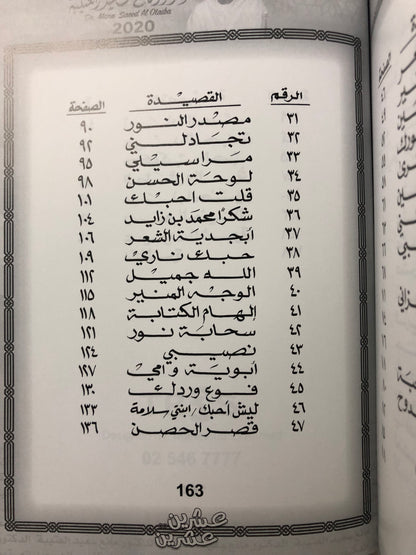 Dr. Mana Saeed Al Otaiba
2020
الرقم القصيدة الصفحة
٣١ مصدر النور ٩٠
٣٢ تجادلني ٩٢
٣٣ مراسيلي ٩٥
٣٤ لوحة الحسن ٩٨
٣٥ قلت احبك ١٠١
٣٦ شكرًا محمد بن زايد ١٠٤
٣٧ أبجدية الشعر ١٠٦
٣٨ حبك ناري ١٠٩
٣٩ الله جميل ١١٢
٤٠ الوجه المنير ١١٥
٤١ إلهام الكتابة ١١٨
٤٢ سحابة نور ١٢١
٤٣ نصيبي ١٢٤
٤٤ أبوية وامي ١٢٧
٤٥ فوع وردك ١٣٠
٤٦ ليش أحبك / ابنتي سلامة ١٣٣
٤٧ قصر الحصن ١٣٦
02 546 7777
163
عشرين
عشرين